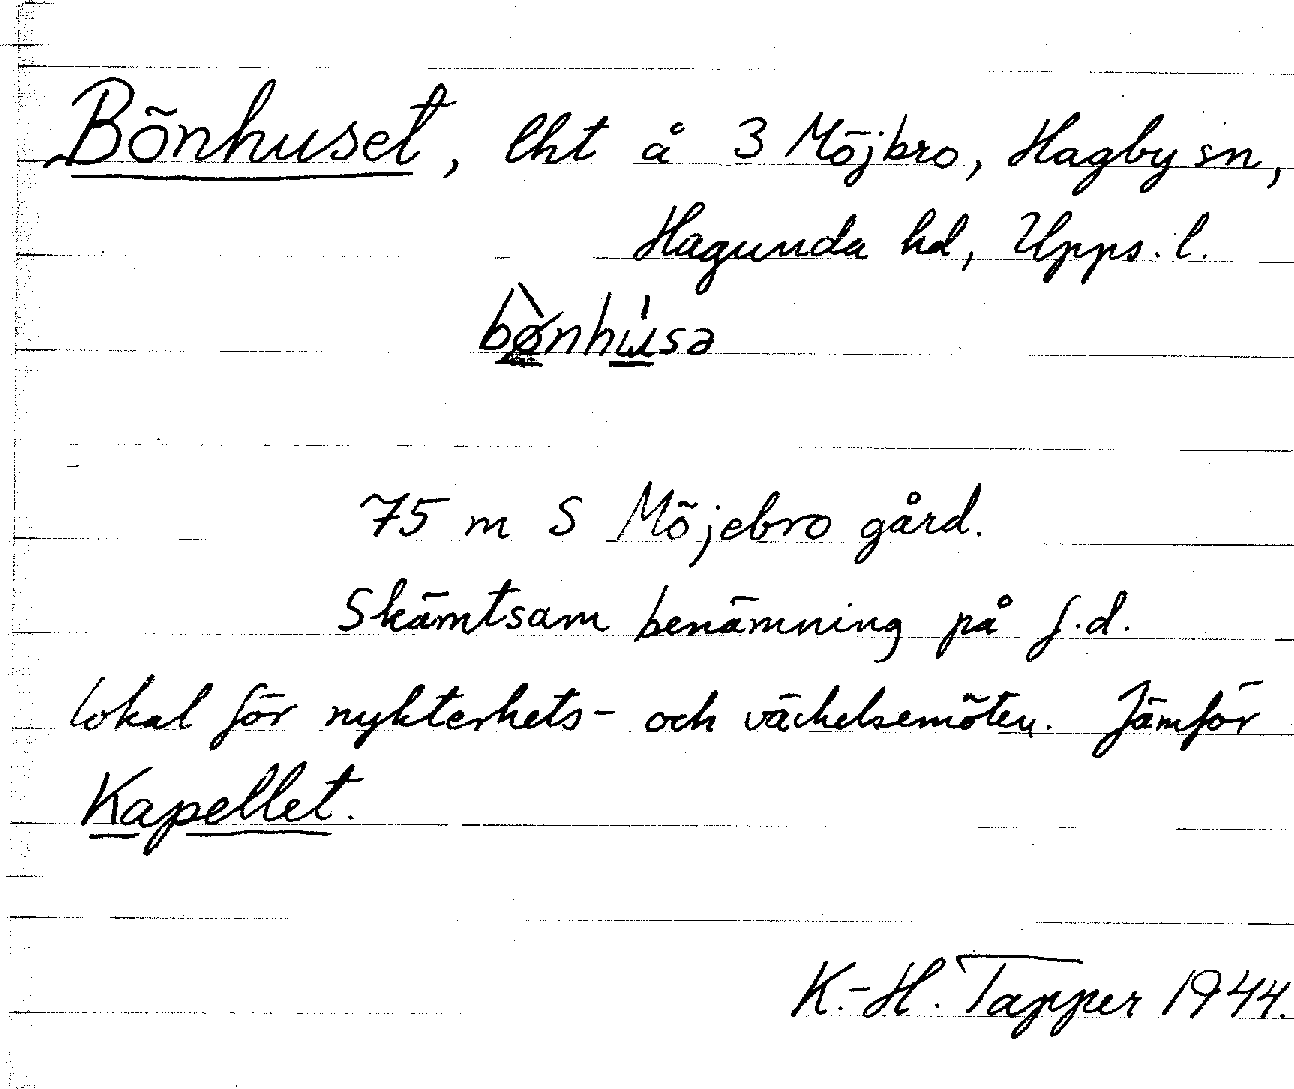 Bönhuset, lht å 3 Möjbro, Hagby sn,
Hagunda hd, Upps. l.
bø̀nhúsə
75 m S Möjebro gård.
Skämtsam benämning på f.d.
lokal för nykterhets- och väckelsemöten. Jämför
Kapellet.
K.-H. Tapper 1944.